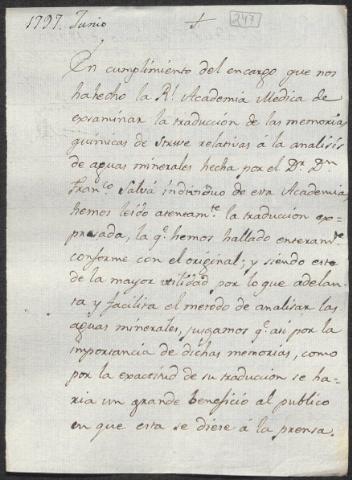 1797. Junio
247
En cumplimiento del encargo que nos
ha hecho la Rl. Academia Medica de
examinar la traduccion de las memorias
quimicas de Struve relativas á la analisis
de aguas minerales hecha por el Dr. Dn.
Franco. Salvá individuo de esta Academia
hemos leido atentamte. la traduccion ex-
presada, la q.e hemos hallado enteramte.
conforme con el original; y siendo este
de la mayor utilidad por lo que adelan-
ta y facilita el metodo de analisar las
aguas minerales, jusgamos q.e asi por la
importancia de dichas memorias, como
por la exactitud de su traduccion se ha-
ria un grande beneficio al publico
en que esta se diese à la prensa.